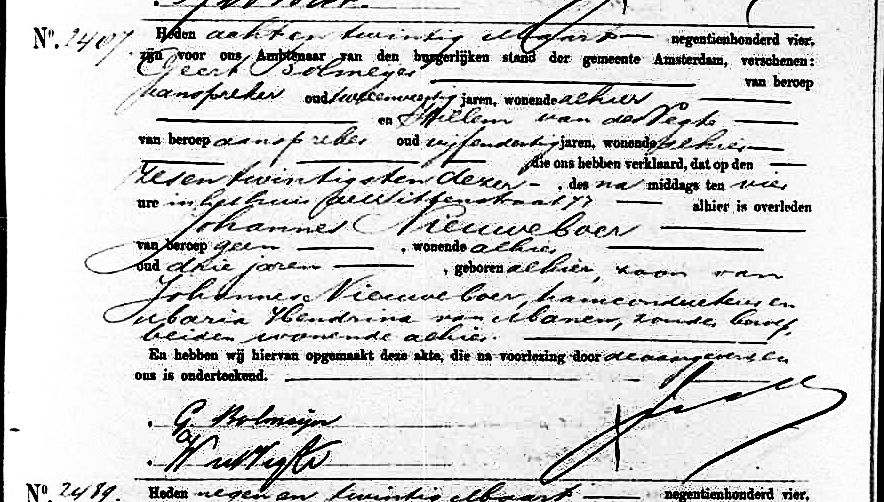 No. 2407. Heden acht en twintig Maart negentienhonderd vier,
zijn voor ons Ambtenaar van den burgerlijken stand der gemeente Amsterdam, verschenen:
Geert Bolmeyer van beroep
aanspreker oud tweeenveertig jaren, wonende alhier
en Willem van der Vegte
van beroep aanspreker oud vijfendertig jaren, wonende alhier
die ons hebben verklaard, dat op den
zesentwintigsten dezer, des na middags ten vier
ure in het huis de Wittenstraat 77 alhier is overleden
Johannes Nieuweboer
van beroep geen, wonende alhier
oud drie jaren, geboren alhier, zoon van
Johannes Nieuweboer, tramconducteur en
Maria Hendrina van Manen, zonder beroep,
beiden wonende alhier.
En hebben wij hiervan opgemaakt deze akte, die na voorlezing door de aangevers en
ons is onderteekend.
G. Bolmeijer
W vd Vegte
No. 2489. Heden negen en twintig Maart negentienhonderd vier,